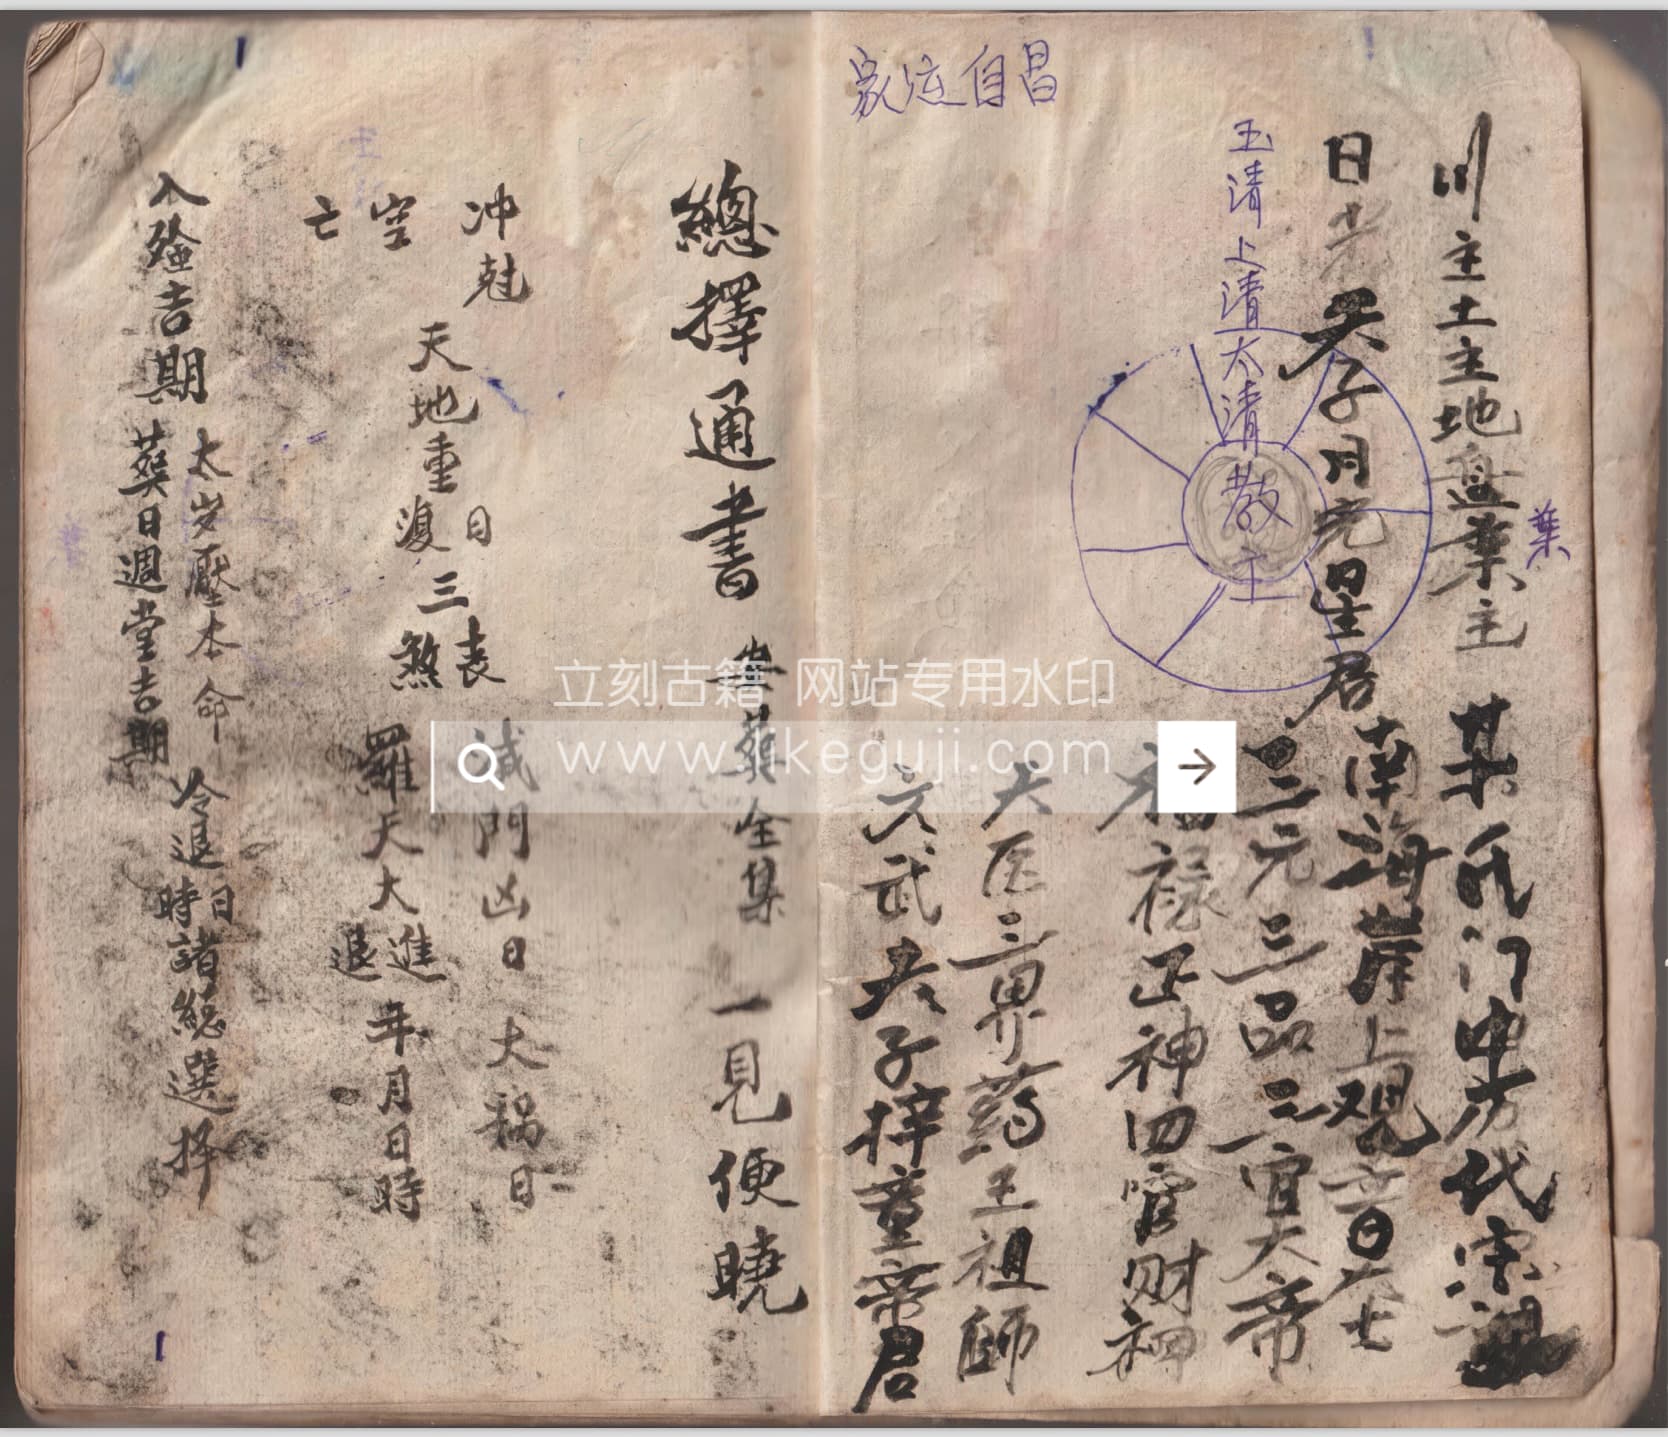 川主土主地盘業主 某氏门中历代宗祖
葉
日光天子月光星君 南海岸上观音大士
玉清上清太清教主
三元三品三官大帝
福禄正神四官财神
大医三界药王祖師
文武夫子梓童帝君
昌自
總擇通書 安葬全集 一見便曉
冲尅
空亡
天地重復日
三喪
煞
滅門凶日 大祸日
羅天大進退年月日時
入殮吉期
太岁壓本命
葬日週堂吉期
冷退日時諸総選择
立刻古籍 网站专用水印
www.likeguji.com